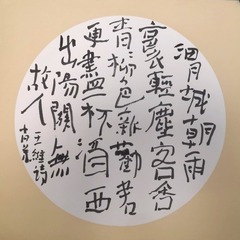 渭城朝雨
裛輕塵客舍
青柳色新勸君
更盡一杯酒西
出陽關無
故人
王維詩